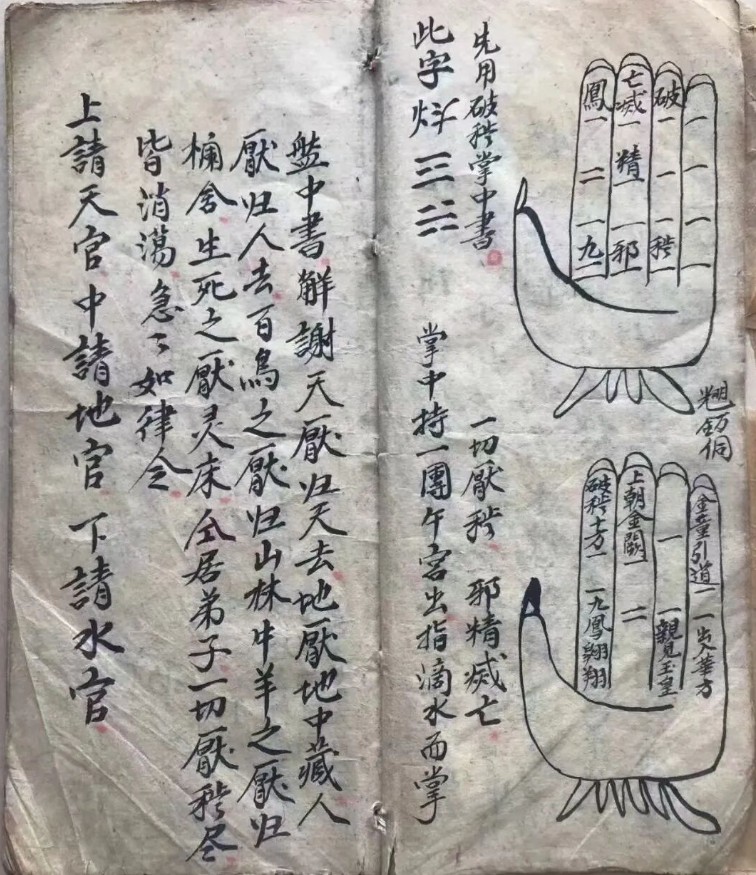 一 一 一
破一 一 秽一
亡滅一 精一 邪一
鳳一 二 一九一
金童引道一 一出入華方
一 一親見玉皇
上朝金闕一 二
破秽十方一 一九鳳翱翔
先用破秽掌中書
一切厭秽 邪精滅亡
此字
掌中持一團午宫出指滴水而掌
盤中書觧謝天厭归天去地厭地中藏人
厭归人去百鳥之厭归山林牛羊之厭归
欄舍生死之厭灵床仝居弟子一切厭秽尽
皆消蕩急々如律令
上請天官中請地官下請水官